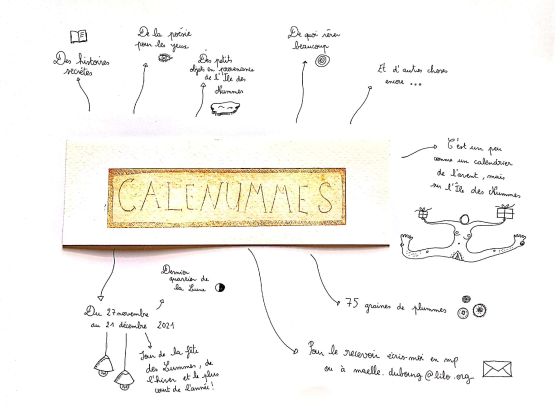 Des histoires
secrètes
De la poésie
pour les yeux
Des petits
objets en provenance
de l'Île des
Nummes
De quoi rêver
beaucoup
Et d'autres choses
encore ...
CALENUMMES
C'est un peu
comme un calendrier
de l'avent, mais
sur l'Île des Nummes
Dernier
quartier de
la Lune
Du 27 novembre
au 21 décembre 2021
Jour de la fête
des Lummes, de
l'hiver et le plus
court de l'année!
75 graines de plummes
Pour le recevoir écris-moi en mp
ou à maelle.dubourg@lilo.org